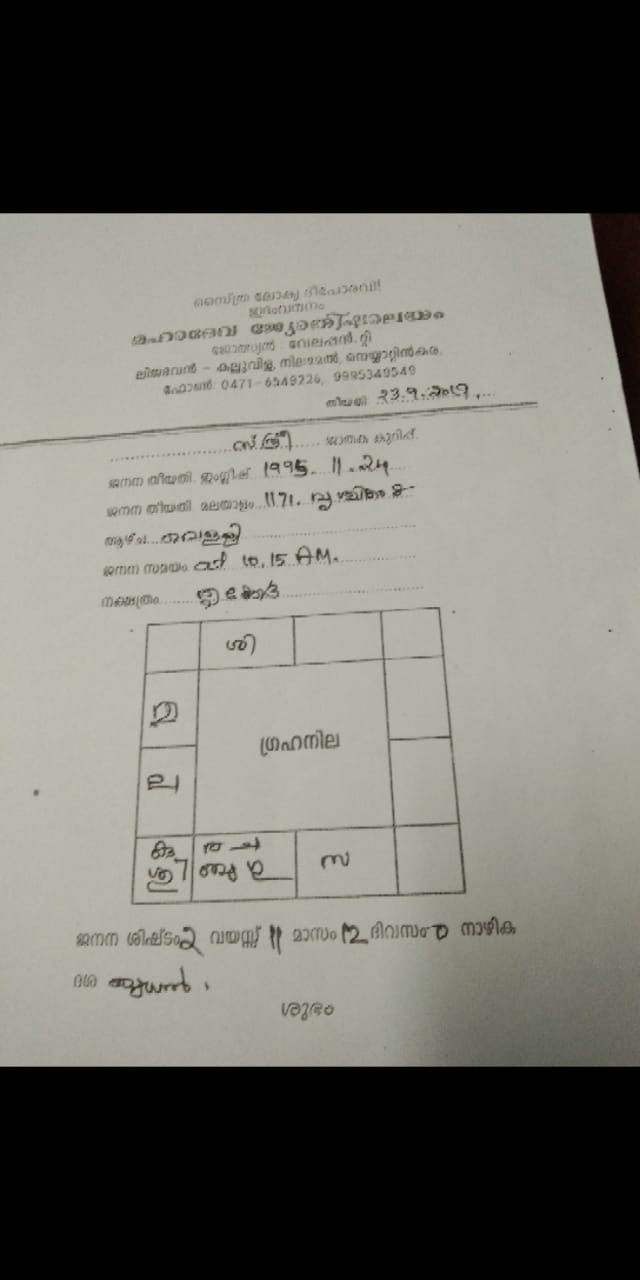 മഹാദേവ ജ്യോതിഷാലയം
ജ്യോത്സ്യൻ : വേലപ്പൻ.റ്റി
ലിജഭവൻ - കല്ലുവിള, നിലമേൽ, നെയ്യാറ്റിൻകര.
ഫോൺ: 0471-6549226, 9995349549
തീയതി 23.9.2017
സ്ത്രീ ജാതക കുറിപ്പ്
ജനന തീയതി ഇംഗ്ലീഷ് 1995. 11. 24
ജനന തീയതി മലയാളം 1171. വൃശ്ചികം 8
ആഴ്ച വെള്ളി
ജനന സമയം 10.15 AM.
നക്ഷത്രം തൃക്കേട്ട
ശി
ഗ്രഹനില
ല
കു
ശു
സ
ജനന ശിഷ്ടം 2 വയസ്സ് 11 മാസം 12 ദിവസം 0 നാഴിക
ദശ ബുധൻ
ശുഭം